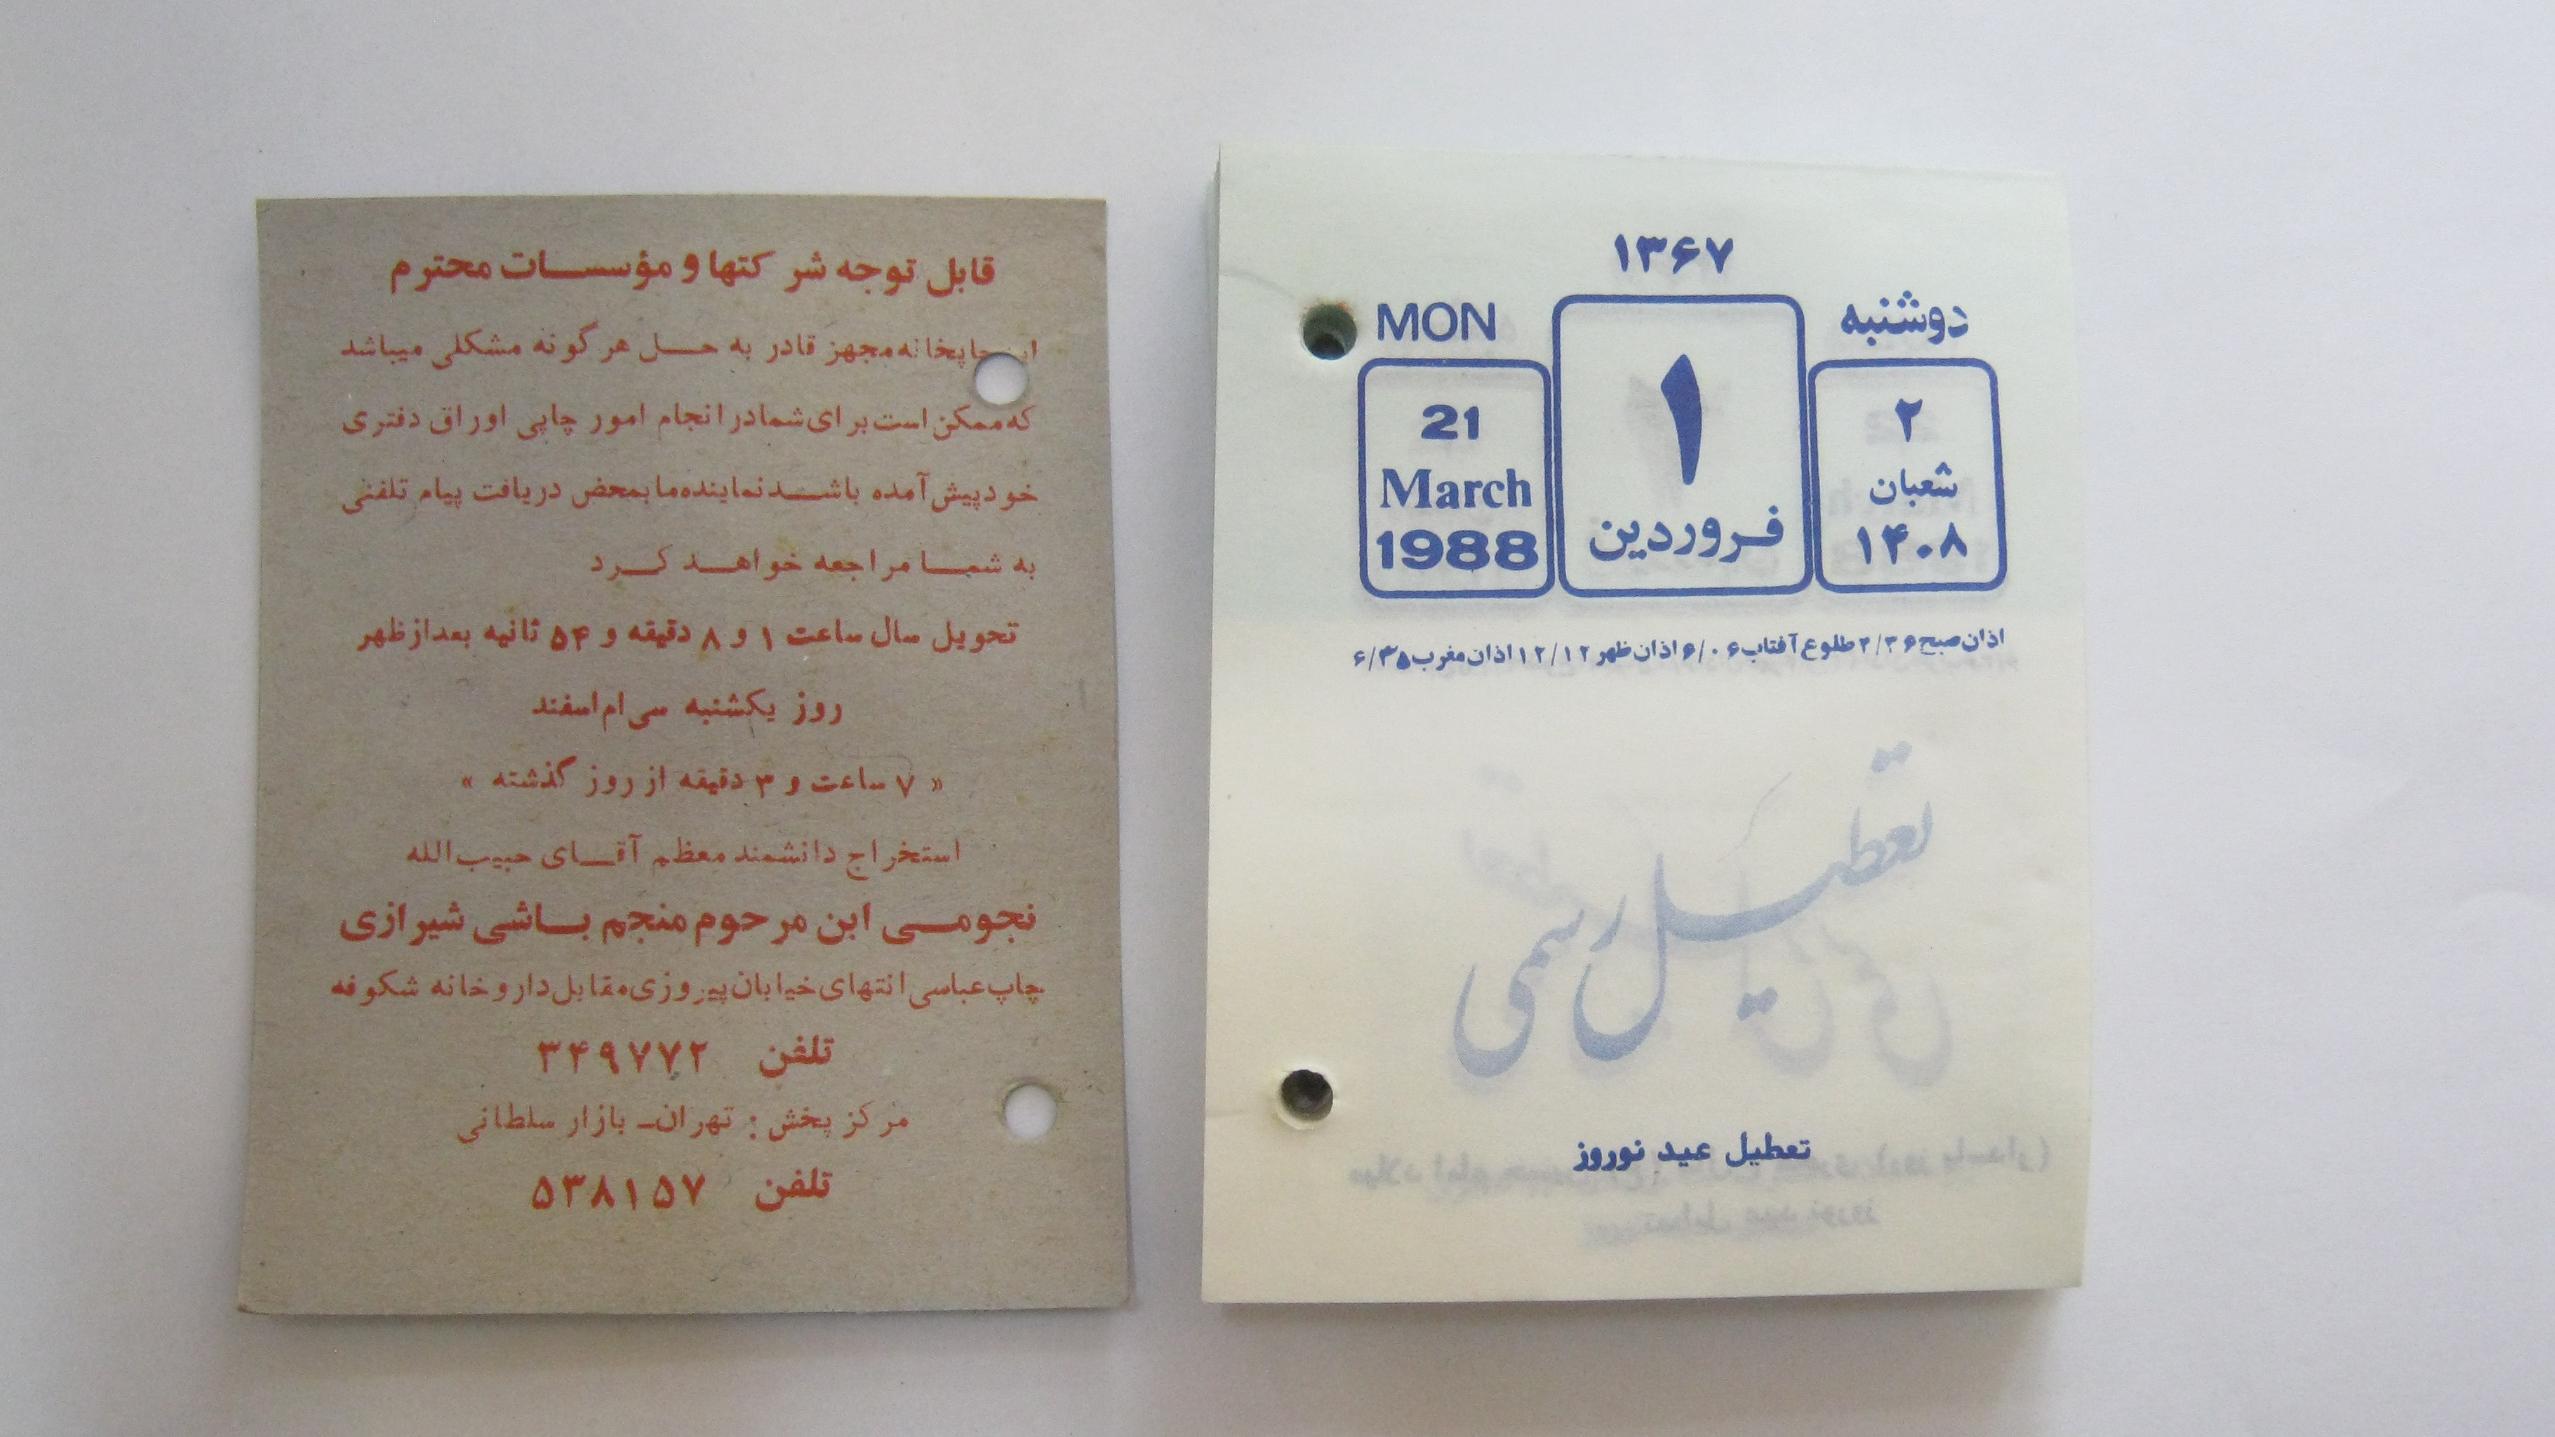 قابل توجه شرکتها و مؤسسات محترم
چاپخانه مجهز قادر به حل هر گونه مشکلی میباشد
که ممکن است برای شما در انجام امور چاپی اوراق دفتری
خود پیش آمده باشد نماینده ما بمحض دریافت پیام تلفنی
به شما مراجعه خواهد کرد
تحویل سال ساعت ۱ و ۸ دقیقه و ۵۴ ثانیه بعد از ظهر
روز یکشنبه سی ام اسفند
« ۷ ساعت و ۳ دقیقه از روز گذشته »
استخراج دانشمند معظم آقای حبیب الله
نجومی ابن مرحوم منجم باشی شیرازی
چاپ عباسی انتهای خیابان پیروزی مقابل داروخانه شکوفه
تلفن ۳۴۹۷۷۲
مرکز پخش : تهران ـ بازار سلطانی
تلفن ۵۳۸۱۵۷
۱۳۶۷
دوشنبه
MON
۲
شعبان
۱۴۰۸
۱
فروردین
21
March
1988
اذان صبح ۴/۳۶ طلوع آفتاب ۶/۰۶ اذان ظهر ۱۲/۱۲ اذان مغرب ۶/۳۵
تعطیل رسمی
تعطیل عید نوروز